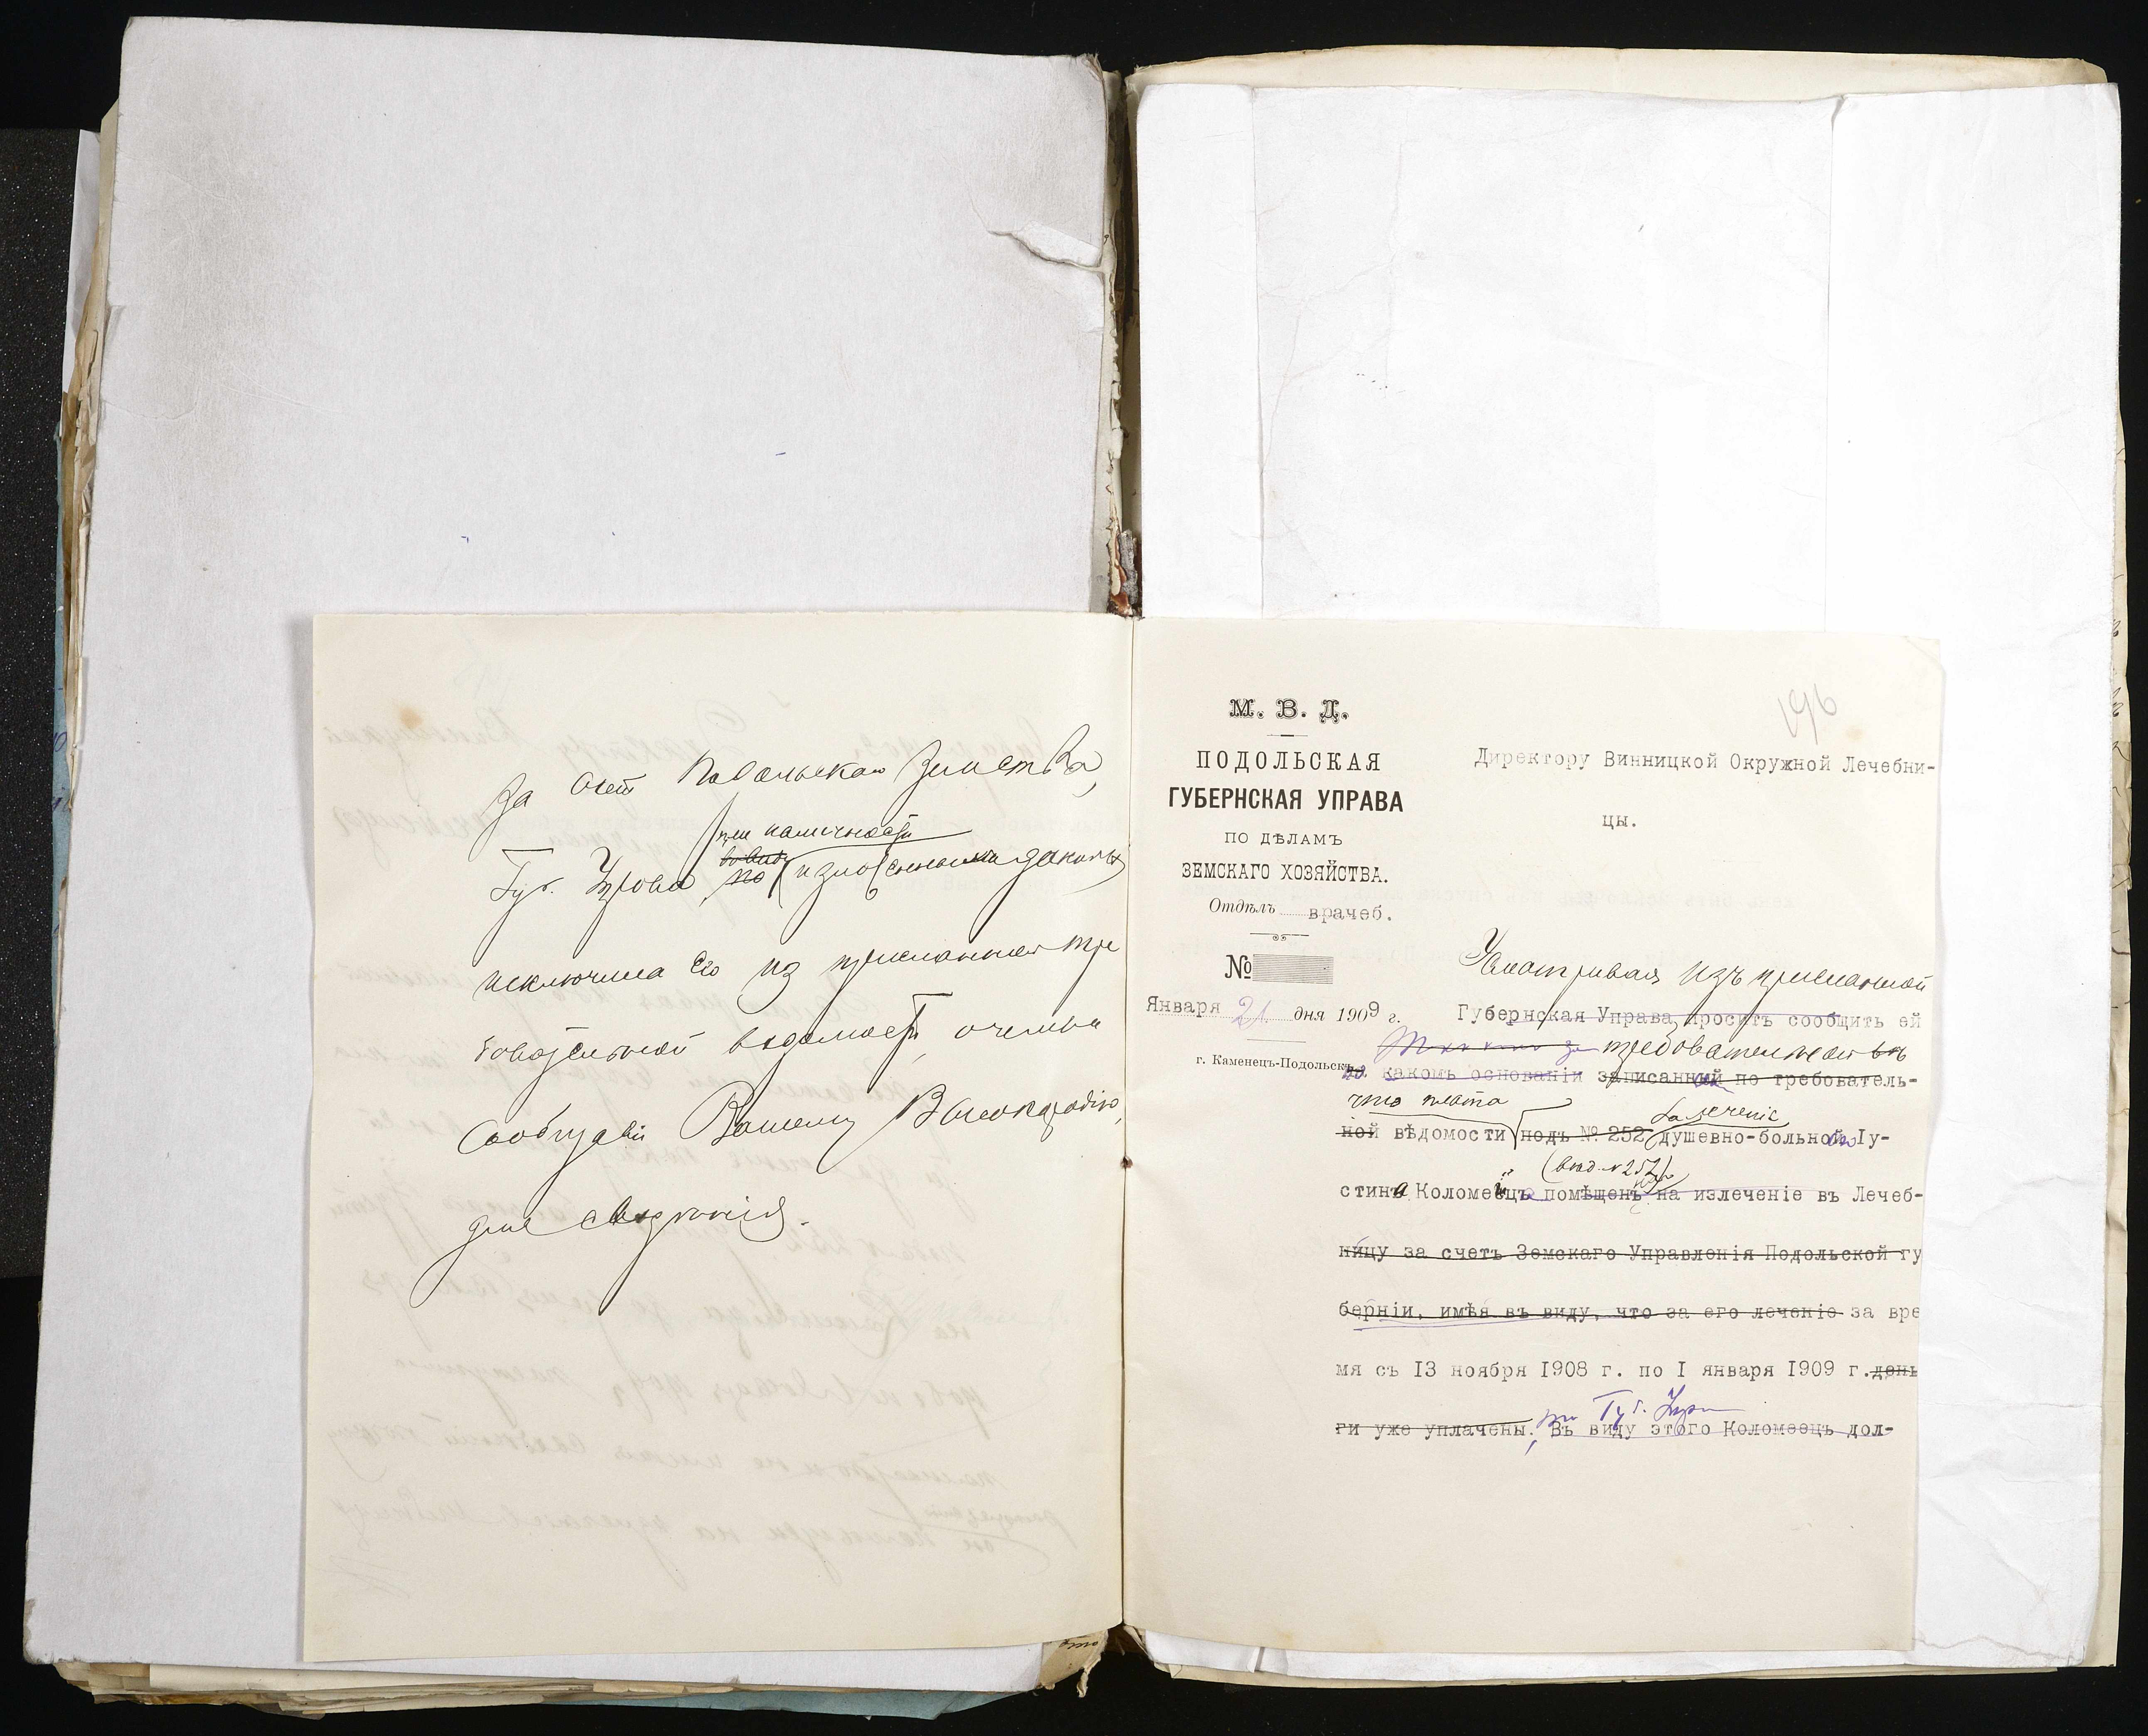 за счет Подольскаго Земства,
при наличности
Губ. Управа, по изложенным законам
исключила его из присланной тре
бовательной ведомости, о чем и
сообщает Вашему Высокородію,
для сведенія.
196
М. В. Д.
ПОДОЛЬСКАЯ
ГУБЕРНСКАЯ УПРАВА
ПО ДѢЛАМЪ
ЗЕМСКАГО ХОЗЯЙСТВА.
Отдѣлъ врачеб.
№
Января 21 дня 1909 г.
г. Каменецъ-Подольскъ.
Директору Винницкой Окружной Лечебни-
цы.
Усматривая изъ присланной
Губернская Управа проситъ сообщить ей
требовательной
какомъ основаніи записанный по требователь-
что плата
за леченіе
ной вѣдомости подъ № 252 душевно-больной Іу-
(вѣд. № 252)
стина Коломеецъ помѣщенъ на излеченіе въ Лечеб-
ницу за счетъ Земскаго Управленія Подольской гу
берніи, имѣя въ виду, что за его леченіе за вре
мя съ 13 ноября 1908 г. по I января 1909 г. день
Губ. Упр
ги уже уплачены. Въ виду этого Коломеецъ дол-